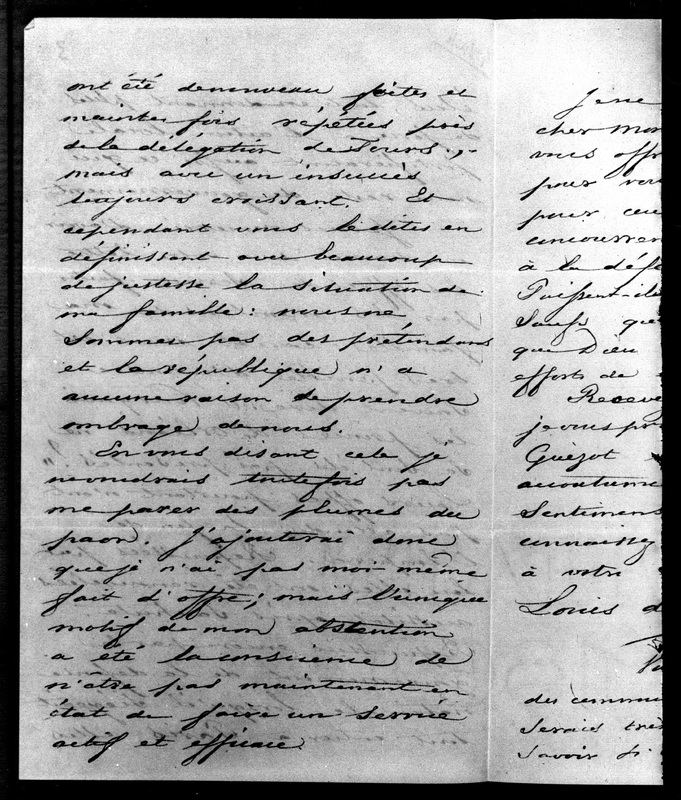 ont été de nouveau faites et
maintes fois répétées près
de la délégation de Tours,
mais avec un insuccès
toujours croissant. Et
cependant vous le dites en
définissant avec beaucoup
de justesse la situation de
ma famille: nous ne
sommes pas des prétendans
et la république n'a
aucune raison de prendre
ombrage de nous.
En vous disant cela je
ne voudrais toutefois pas
me parer des plumes du
paon. J'ajouterai donc
que je n'ai pas moi-même
fait d'offre; mais l'unique
motif de mon abstention
a été la conscience de
n'être pas maintenant en
état de faire un service
actif et efficace
Je ne
cher Mon
vous offr
pour vou
pour ceu
concourren
à la défe
Puissent-ils
Sauf que
que Dieu
efforts de
Recevez
je vous pri
Guizot
accoutumé
Sentimens
connaissez
à votre
Louis d
des commu
Serais très
Savoir si